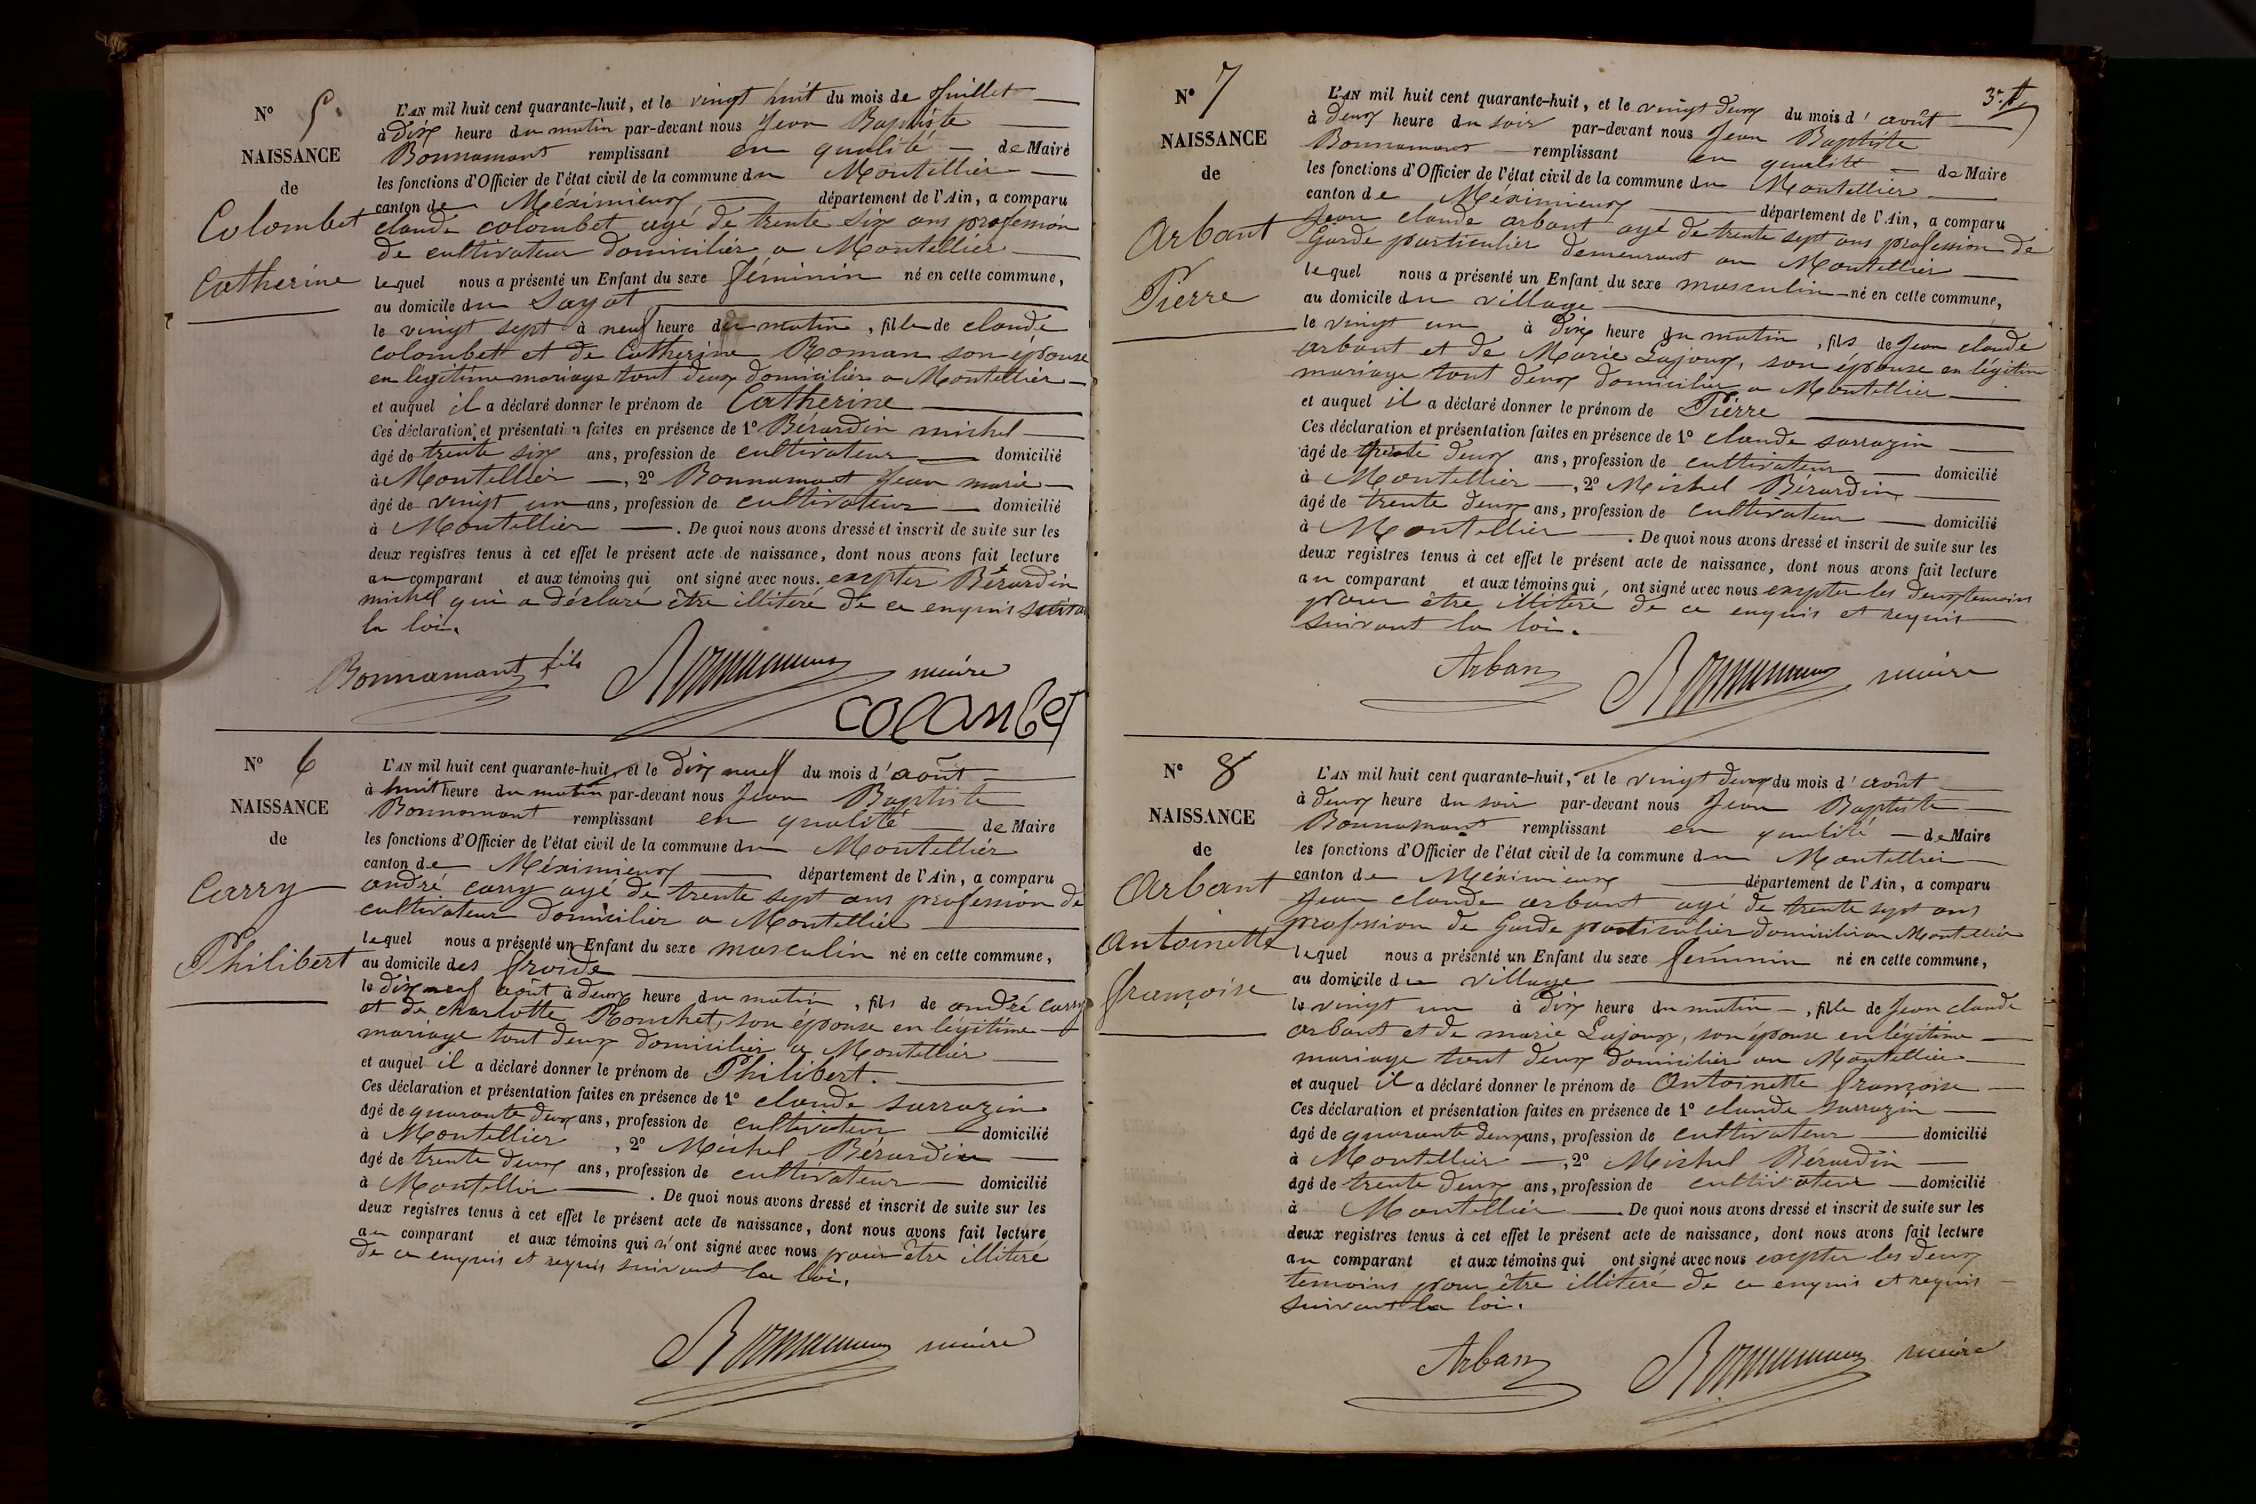 N° 5.
NAISSANCE
de
Colombet
Catherine
L'AN mil huit cent quarante-huit, et le vingt huit du mois de Juillet
à dix heure du matin par-devant nous Jean Baptiste
Bonnamant remplissant en qualité de Maire
les fonctions d'Officier de l'état civil de la commune du Montellier
canton de Méximieux département de l'Ain, a comparu
claude colombet agé de trente six ans profession
de cultivateur domicilier a Montellier
lequel nous a présenté un Enfant du sexe féminin né en cette commune,
au domicile du Sayat
le vingt sept à neuf heure du matin, fille de claude
colombett et de Catherine Roman son épouse
en légitime mariage tout deux domicilier a Montellier
et auquel il a déclaré donner le prénom de Catherine
Ces déclaration et présentation faites en présence de 1° Bérardin michel
âgé de trente six ans, profession de cultivateur domicilié
à Montellier, 2° Bonnamant Jean marie
âgé de vingt un ans, profession de cultivateur domicilié
à Montellier. De quoi nous avons dressé et inscrit de suite sur les
deux registres tenus à cet effet le présent acte de naissance, dont nous avons fait lecture
au comparant et aux témoins qui ont signé avec nous. excepter Bérardin
michel qui a déclaré être illiteré de ce enquis suivan
la loi.
Bonnamant fils Bonnamant maire
colombet
N° 6
NAISSANCE
de
Carry
Philibert
L'AN mil huit cent quarante-huit, et le dix neuf du mois d'août
à huit heure du matin par-devant nous Jean Baptiste
Bonnamant remplissant en qualité de Maire
les fonctions d'Officier de l'état civil de la commune du Montellier
canton de Méximieux département de l'Ain, a comparu
andré carry agé de trente sept ans profession de
cultivateur domicilier a Montellier
lequel nous a présenté un Enfant du sexe masculin né en cette commune,
au domicile des froide
le dix neuf août à deux heure du matin, fils de andré carry
et de charlotte Rouchet, son épouse en légitime
mariage tout deux domicilier a Montellier
et auquel il a déclaré donner le prénom de Philibert.
Ces déclaration et présentation faites en présence de 1° claude sarrazin
âgé de quarante deux ans, profession de cultivateur domicilié
à Montellier, 2° Michel Bérardin
âgé de trente deux ans, profession de cultivateur domicilié
à Montellier. De quoi nous avons dressé et inscrit de suite sur les
deux registres tenus à cet effet le présent acte de naissance, dont nous avons fait lecture
au comparant et aux témoins qui n'ont signé avec nous pour être illiteré
de ce enquis et requis suivant la loi.
Bonnamant maire
3e
N° 7
NAISSANCE
de
Arbant
Pierre
L'AN mil huit cent quarante-huit, et le vingt deux du mois d'août
à deux heure du soir par-devant nous Jean Baptiste
Bonnamant remplissant en qualité de Maire
les fonctions d'Officier de l'état civil de la commune du Montellier
canton de Méximieux département de l'Ain, a comparu
Jean claude arbant agé de trente sept ans profession de
Garde particulier demeurant au Montellier
lequel nous a présenté un Enfant du sexe masculin né en cette commune,
au domicile du village
le vingt un à dix heure du matin, fils de Jean claude
arbant et de Marie Lajoux, son épouse en légitim
mariage tout deux domicilier a Montellier
et auquel il a déclaré donner le prénom de Pierre
Ces déclaration et présentation faites en présence de 1° claude sarrazin
âgé de trente deux ans, profession de cultivateur domicilié
à Montellier, 2° Michel Bérardin
âgé de trente deux ans, profession de cultivateur domicilié
à Montellier. De quoi nous avons dressé et inscrit de suite sur les
deux registres tenus à cet effet le présent acte de naissance, dont nous avons fait lecture
au comparant et aux témoins qui, ont signé avec nous excepter les deux temoins
pour être illiteré de ce enquis et requis
suivant la loi.
Arban Bonnamant maire
N° 8
NAISSANCE
de
Arbant
antoinette
françoise
L'AN mil huit cent quarante-huit, et le vingt deux du mois d'août
à deux heure du soir par-devant nous Jean Baptiste
Bonnamant remplissant en qualité de Maire
les fonctions d'Officier de l'état civil de la commune du Montellier
canton de Méximieux département de l'Ain, a comparu
Jean claude arbant agé de trente sept ans
profession de Garde particulier domicilier au Montellier
lequel nous a présenté un Enfant du sexe féminin né en cette commune,
au domicile du village
le vingt un à dix heure du matin, fille de Jean claude
arbant et de marie Lajoux, son épouse en légitime
mariage tout deux domicilier au Montellier
et auquel il a déclaré donner le prénom de Antoinette françoise
Ces déclaration et présentation faites en présence de 1° claude sarrazin
âgé de quarante deux ans, profession de cultivateur domicilié
à Montellier, 2° Michel Bérardin
âgé de trente deux ans, profession de cultivateur domicilié
à Montellier De quoi nous avons dressé et inscrit de suite sur les
deux registres tenus à cet effet le présent acte de naissance, dont nous avons fait lecture
au comparant et aux témoins qui ont signé avec nous excepter les deux
temoins pour être illiteré de ce enquis et requis
suivant la loi.
Arban Bonnamant maire